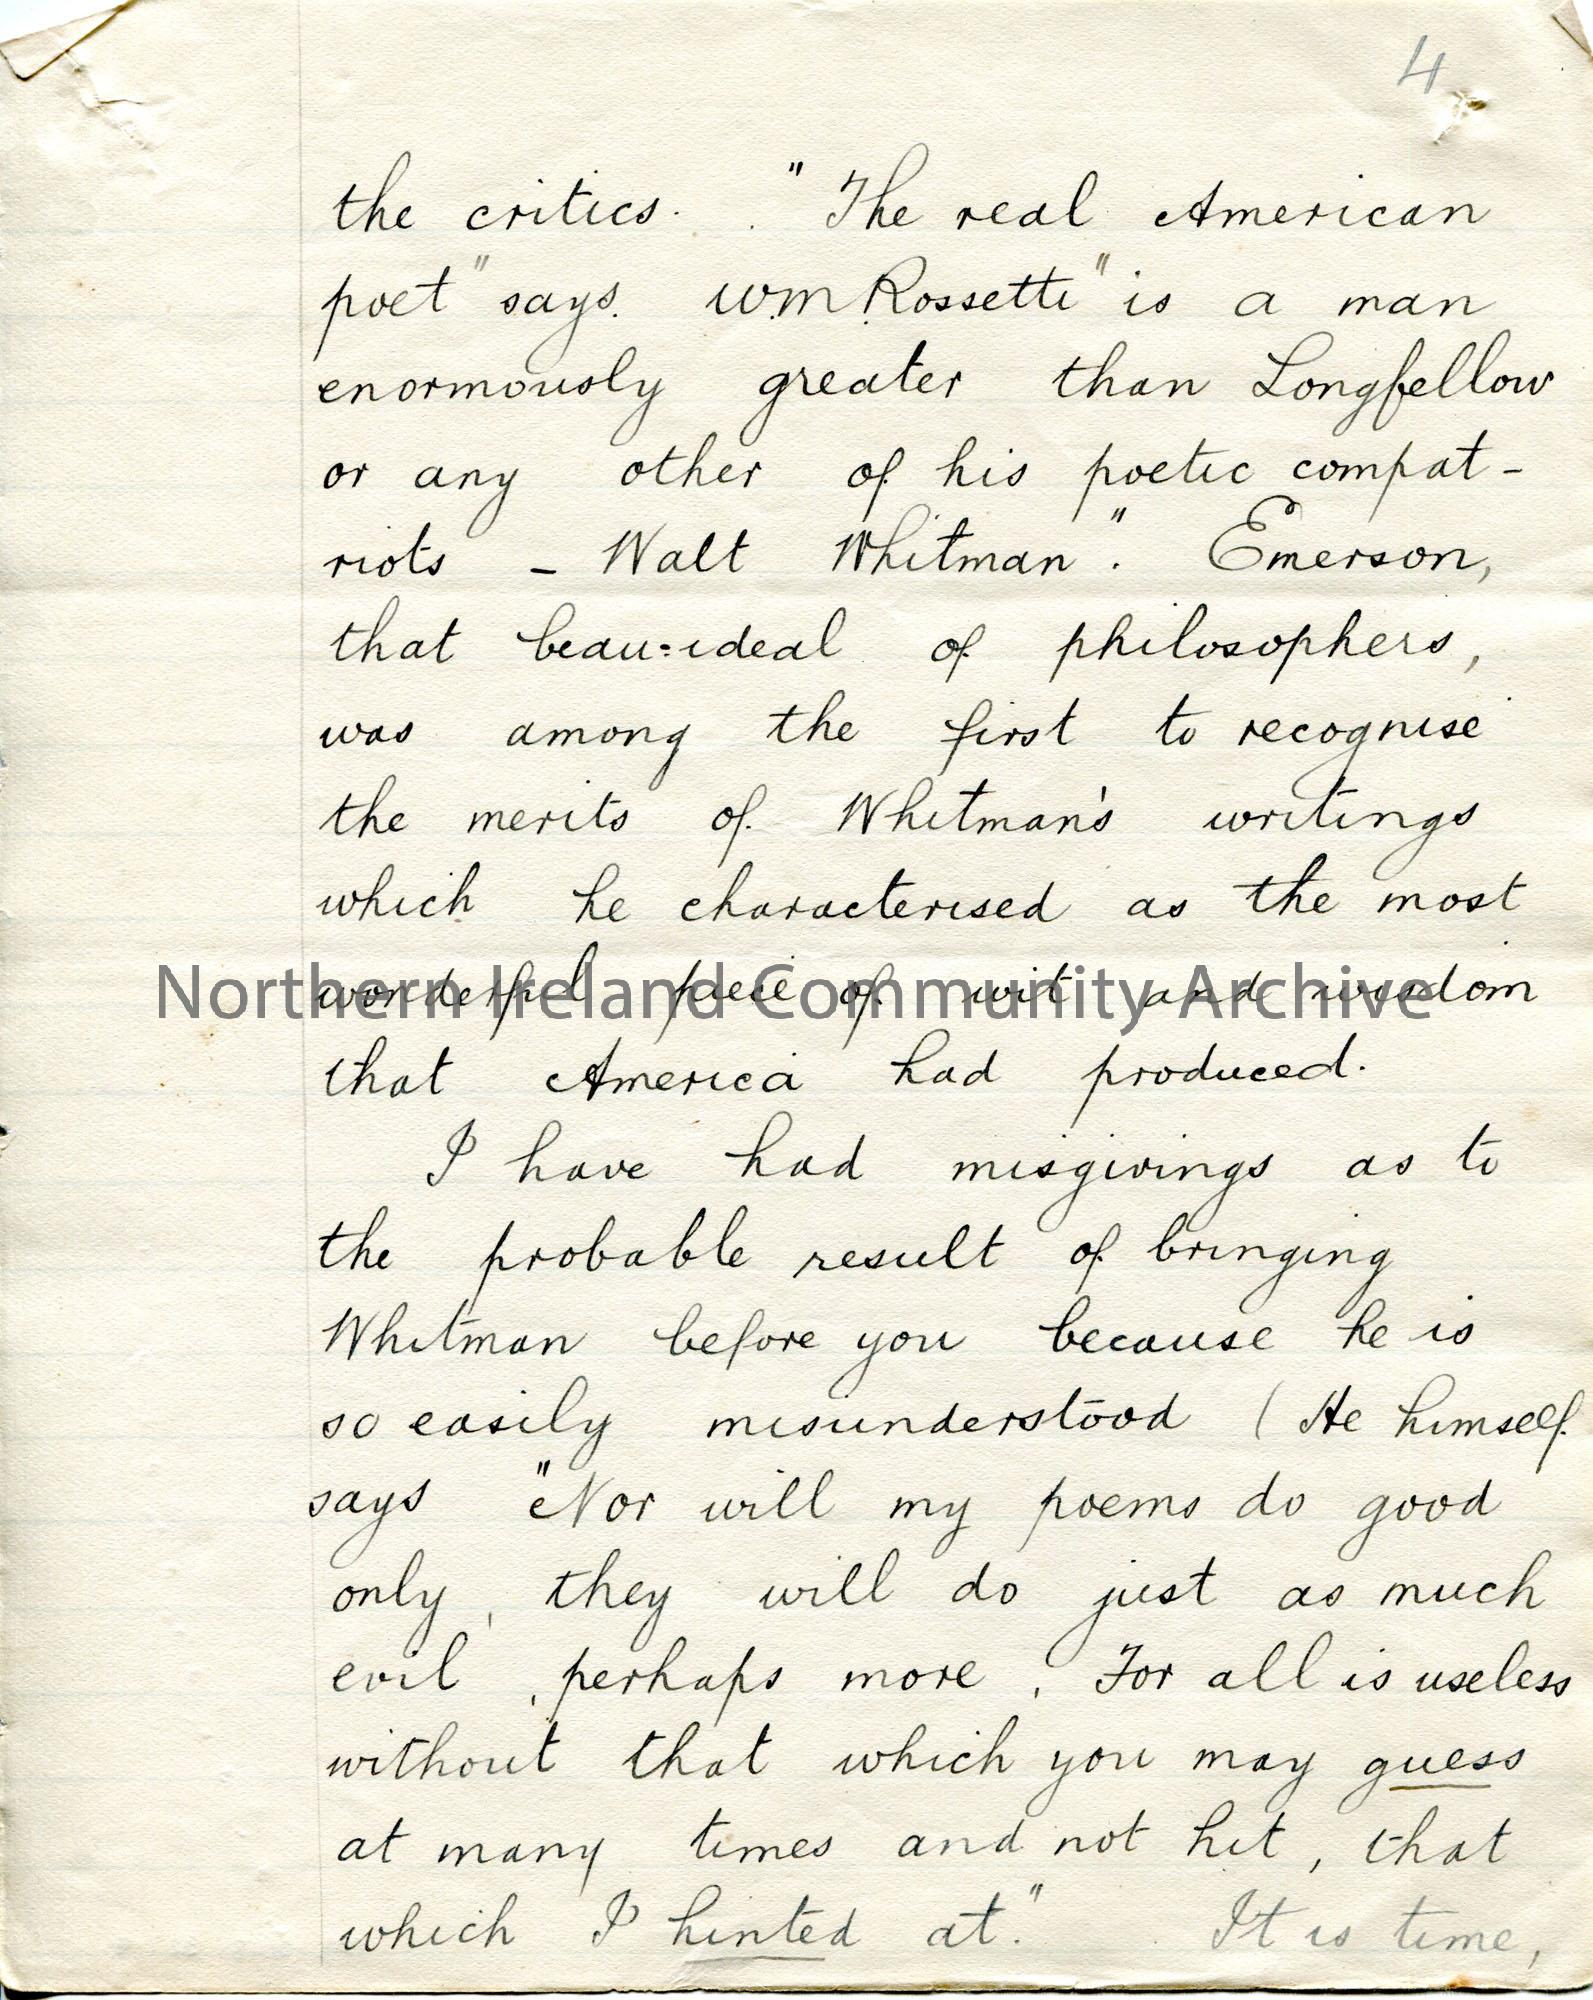 4
the critics. "The real American
poet" says. W.M. Rossetti "is a man
enormously greater than Longfellow
or any other of his poetic compat-
riots - Walt Whitman". Emerson,
that beau=ideal of philosophers,
was among the first to recognise
the merits of Whitman's writings
which he characterised as the most
wonderful piece of wit and wisdom
Northern Ireland Community Archive
that America had produced.
I have had misgivings as to
the probable result of bringing
Whitman before you because he is
so easily misunderstood (He himself
says "Nor will my poems do good
only, they will do just as much
evil, perhaps more, For all is useless
without that which you may guess
at many times and not hit, that
which I hinted at." It is time,